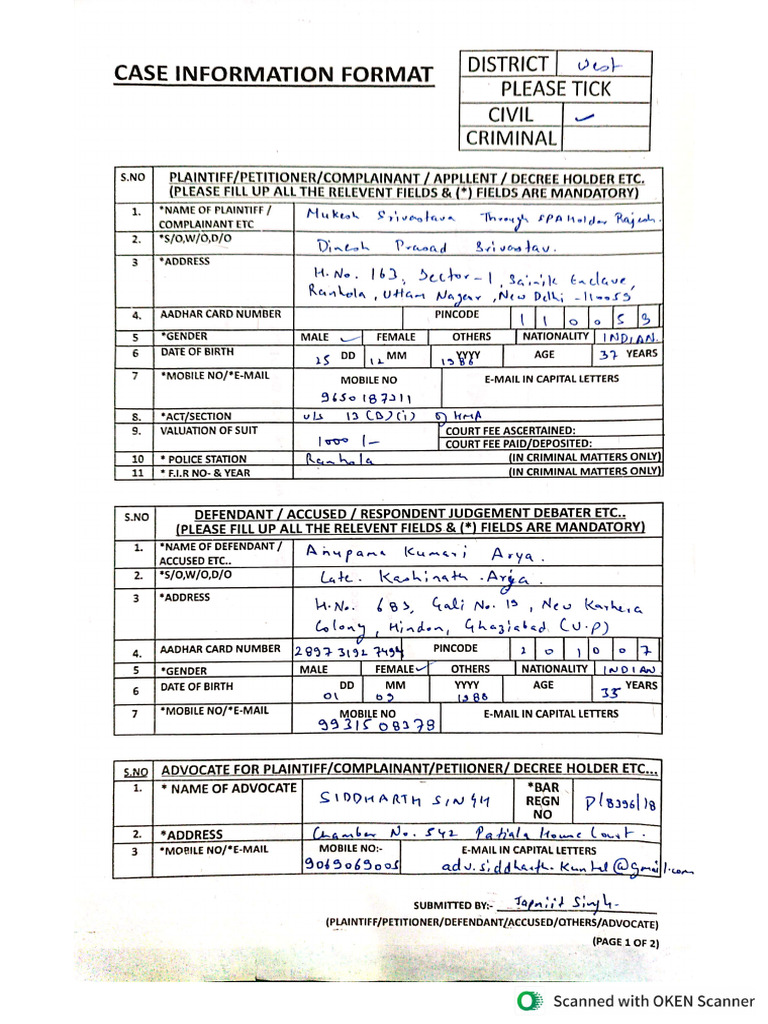 CASE INFORMATION FORMAT
DISTRICT West
PLEASE TICK
CIVIL ✓
CRIMINAL
S.NO PLAINTIFF/PETITIONER/COMPLAINANT / APPLLENT / DECREE HOLDER ETC.
(PLEASE FILL UP ALL THE RELEVENT FIELDS & (*) FIELDS ARE MANDATORY)
1. *NAME OF PLAINTIFF / COMPLAINANT ETC Mukesh Srivastava Through SPA Holder Rajesh.
2. *S/O,W/O,D/O Dinesh Prasad Srivastav.
3 *ADDRESS H.No. 163, Sector-1, Sainik Enclave,
Ranhola, Uttam Nagar, New Delhi -110059
4. AADHAR CARD NUMBER PINCODE 1 1 0 0 5 9
5 *GENDER MALE ✓ FEMALE OTHERS NATIONALITY INDIAN.
6 DATE OF BIRTH 25 DD 12 MM 1986 YYYY AGE 37 YEARS
7 *MOBILE NO/*E-MAIL MOBILE NO E-MAIL IN CAPITAL LETTERS
9650187211
8. *ACT/SECTION u/s 13 (1)(i) of HMA
9. VALUATION OF SUIT 1000/- COURT FEE ASCERTAINED:
COURT FEE PAID/DEPOSITED:
10 * POLICE STATION Ranhola (IN CRIMINAL MATTERS ONLY)
11 * F.I.R NO- & YEAR (IN CRIMINAL MATTERS ONLY)
S.NO DEFENDANT / ACCUSED / RESPONDENT JUDGEMENT DEBATER ETC..
(PLEASE FILL UP ALL THE RELEVENT FIELDS & (*) FIELDS ARE MANDATORY)
1. *NAME OF DEFENDANT / ACCUSED ETC.. Anupama Kumari Arya.
2. *S/O,W/O,D/O Late. Kashinath Arya.
3 *ADDRESS H.No. 683, Gali No. 19, New Karhera
Colony, Hindon, Ghaziabad (U.P)
4. AADHAR CARD NUMBER 2897 3192 7494 PINCODE 2 0 1 0 0 7
5 *GENDER MALE FEMALE ✓ OTHERS NATIONALITY INDIAN
6 DATE OF BIRTH 01 DD 03 MM 1988 YYYY AGE 35 YEARS
7 *MOBILE NO/*E-MAIL MOBILE NO E-MAIL IN CAPITAL LETTERS
9931508378
S.NO ADVOCATE FOR PLAINTIFF/COMPLAINANT/PETIIONER/ DECREE HOLDER ETC...
1. * NAME OF ADVOCATE SIDDHARTH SINGH *BAR REGN NO P/8396/18
2. *ADDRESS Chamber No. 542 Patiala House Court.
3 *MOBILE NO/*E-MAIL MOBILE NO:- E-MAIL IN CAPITAL LETTERS
9069069005 adv.siddharth.kuntel@gmail.com
SUBMITTED BY:- Japniit Singh
(PLAINTIFF/PETITIONER/DEFENDANT/ACCUSED/OTHERS/ADVOCATE)
(PAGE 1 OF 2)
Scanned with OKEN Scanner